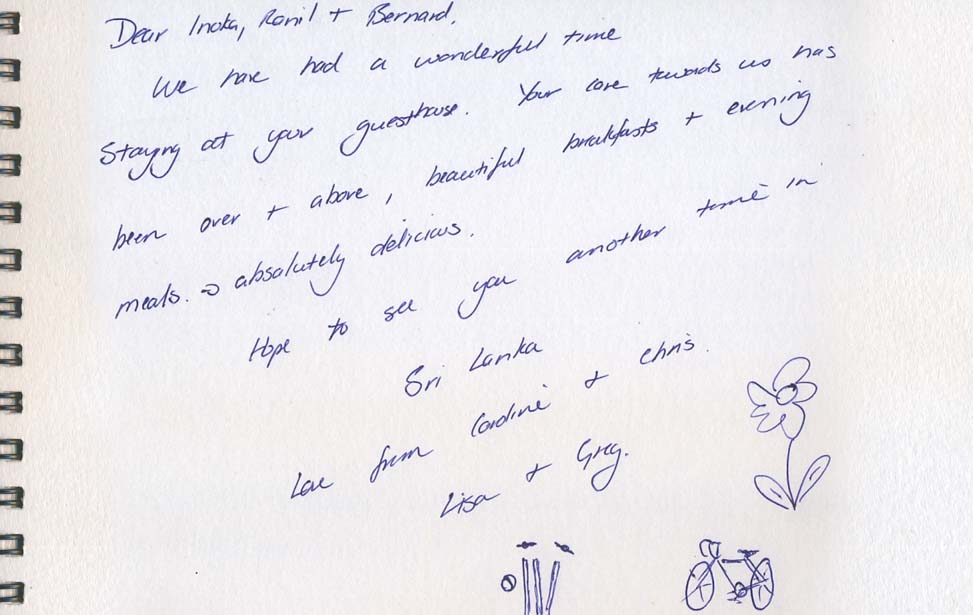 Dear Inoka, Ranil + Bernard.
We have had a wonderful time
staying at your guesthouse. Your care towards us has
been over + above, beautiful breakfasts + evening
meals. → absolutely delicious.
Hope to see you another time in
Sri Lanka
Love from Caroline + Chris.
Lisa + Greg.